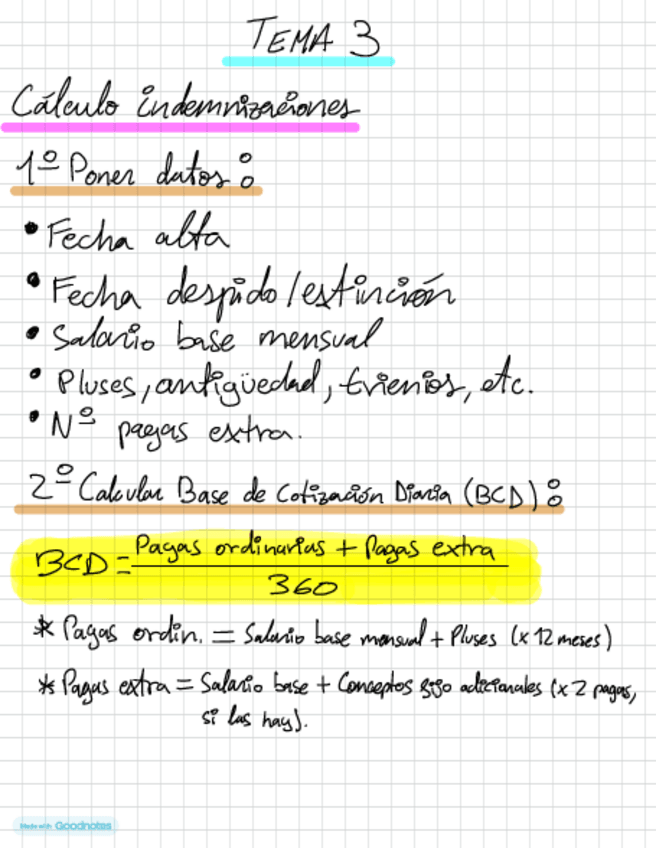 TEMA 3
Cálculo indemnizaciones
1º Poner datos:
• Fecha alta
• Fecha despido/extinción
• Salario base mensual
• Pluses, antigüedad, trienios, etc.
• Nº pagas extra.
2º Calcular Base de Cotización Diaria (BCD):
BCD = Pagas ordinarias + Pagas extra
360
* Pagas ordin. = Salario base mensual + Pluses (x 12 meses)
* Pagas extra = Salario base + Conceptos fijo adicionales (x 2 pagas,
si las hay).
Made with Goodnotes